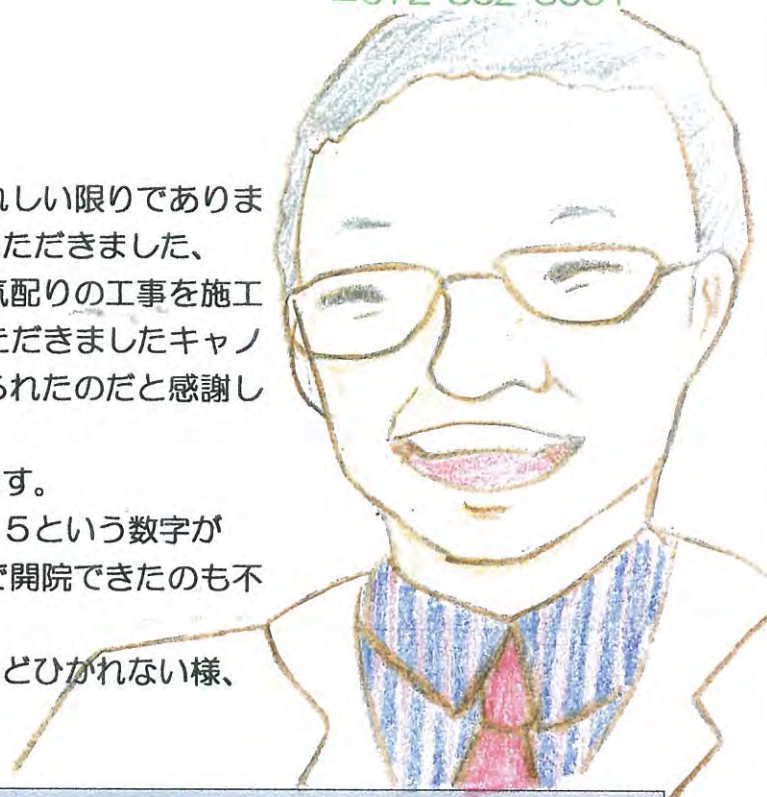 れしい限りでありま
ただきました、
気配りの工事を施工
ただきましたキャノ
られたのだと感謝し
す。
5という数字が
で開院できたのも不
どひかれない様、